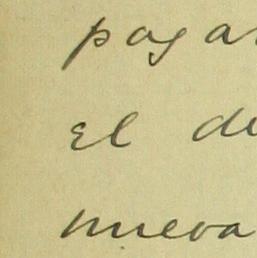 pagar
el de
nueva